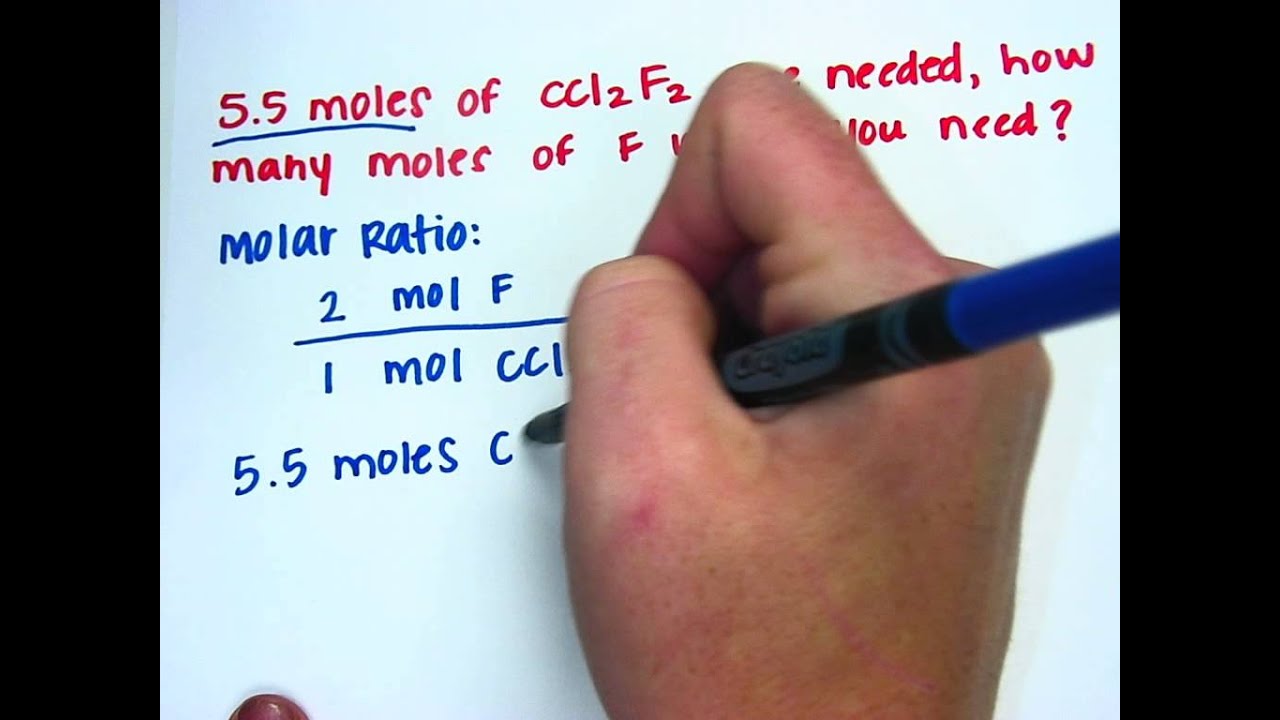 5.5 moles of CCl₂F₂ needed, how
many moles of F you need?
Molar Ratio:
2 mol F
1 mol CCl
5.5 moles C
Crayola